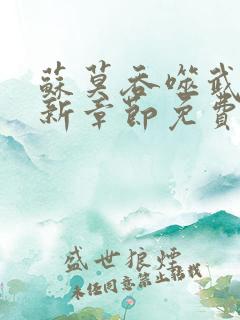 蘇莫吞噬武
新章節免費
盛世狼煙
未經同意禁止轉載